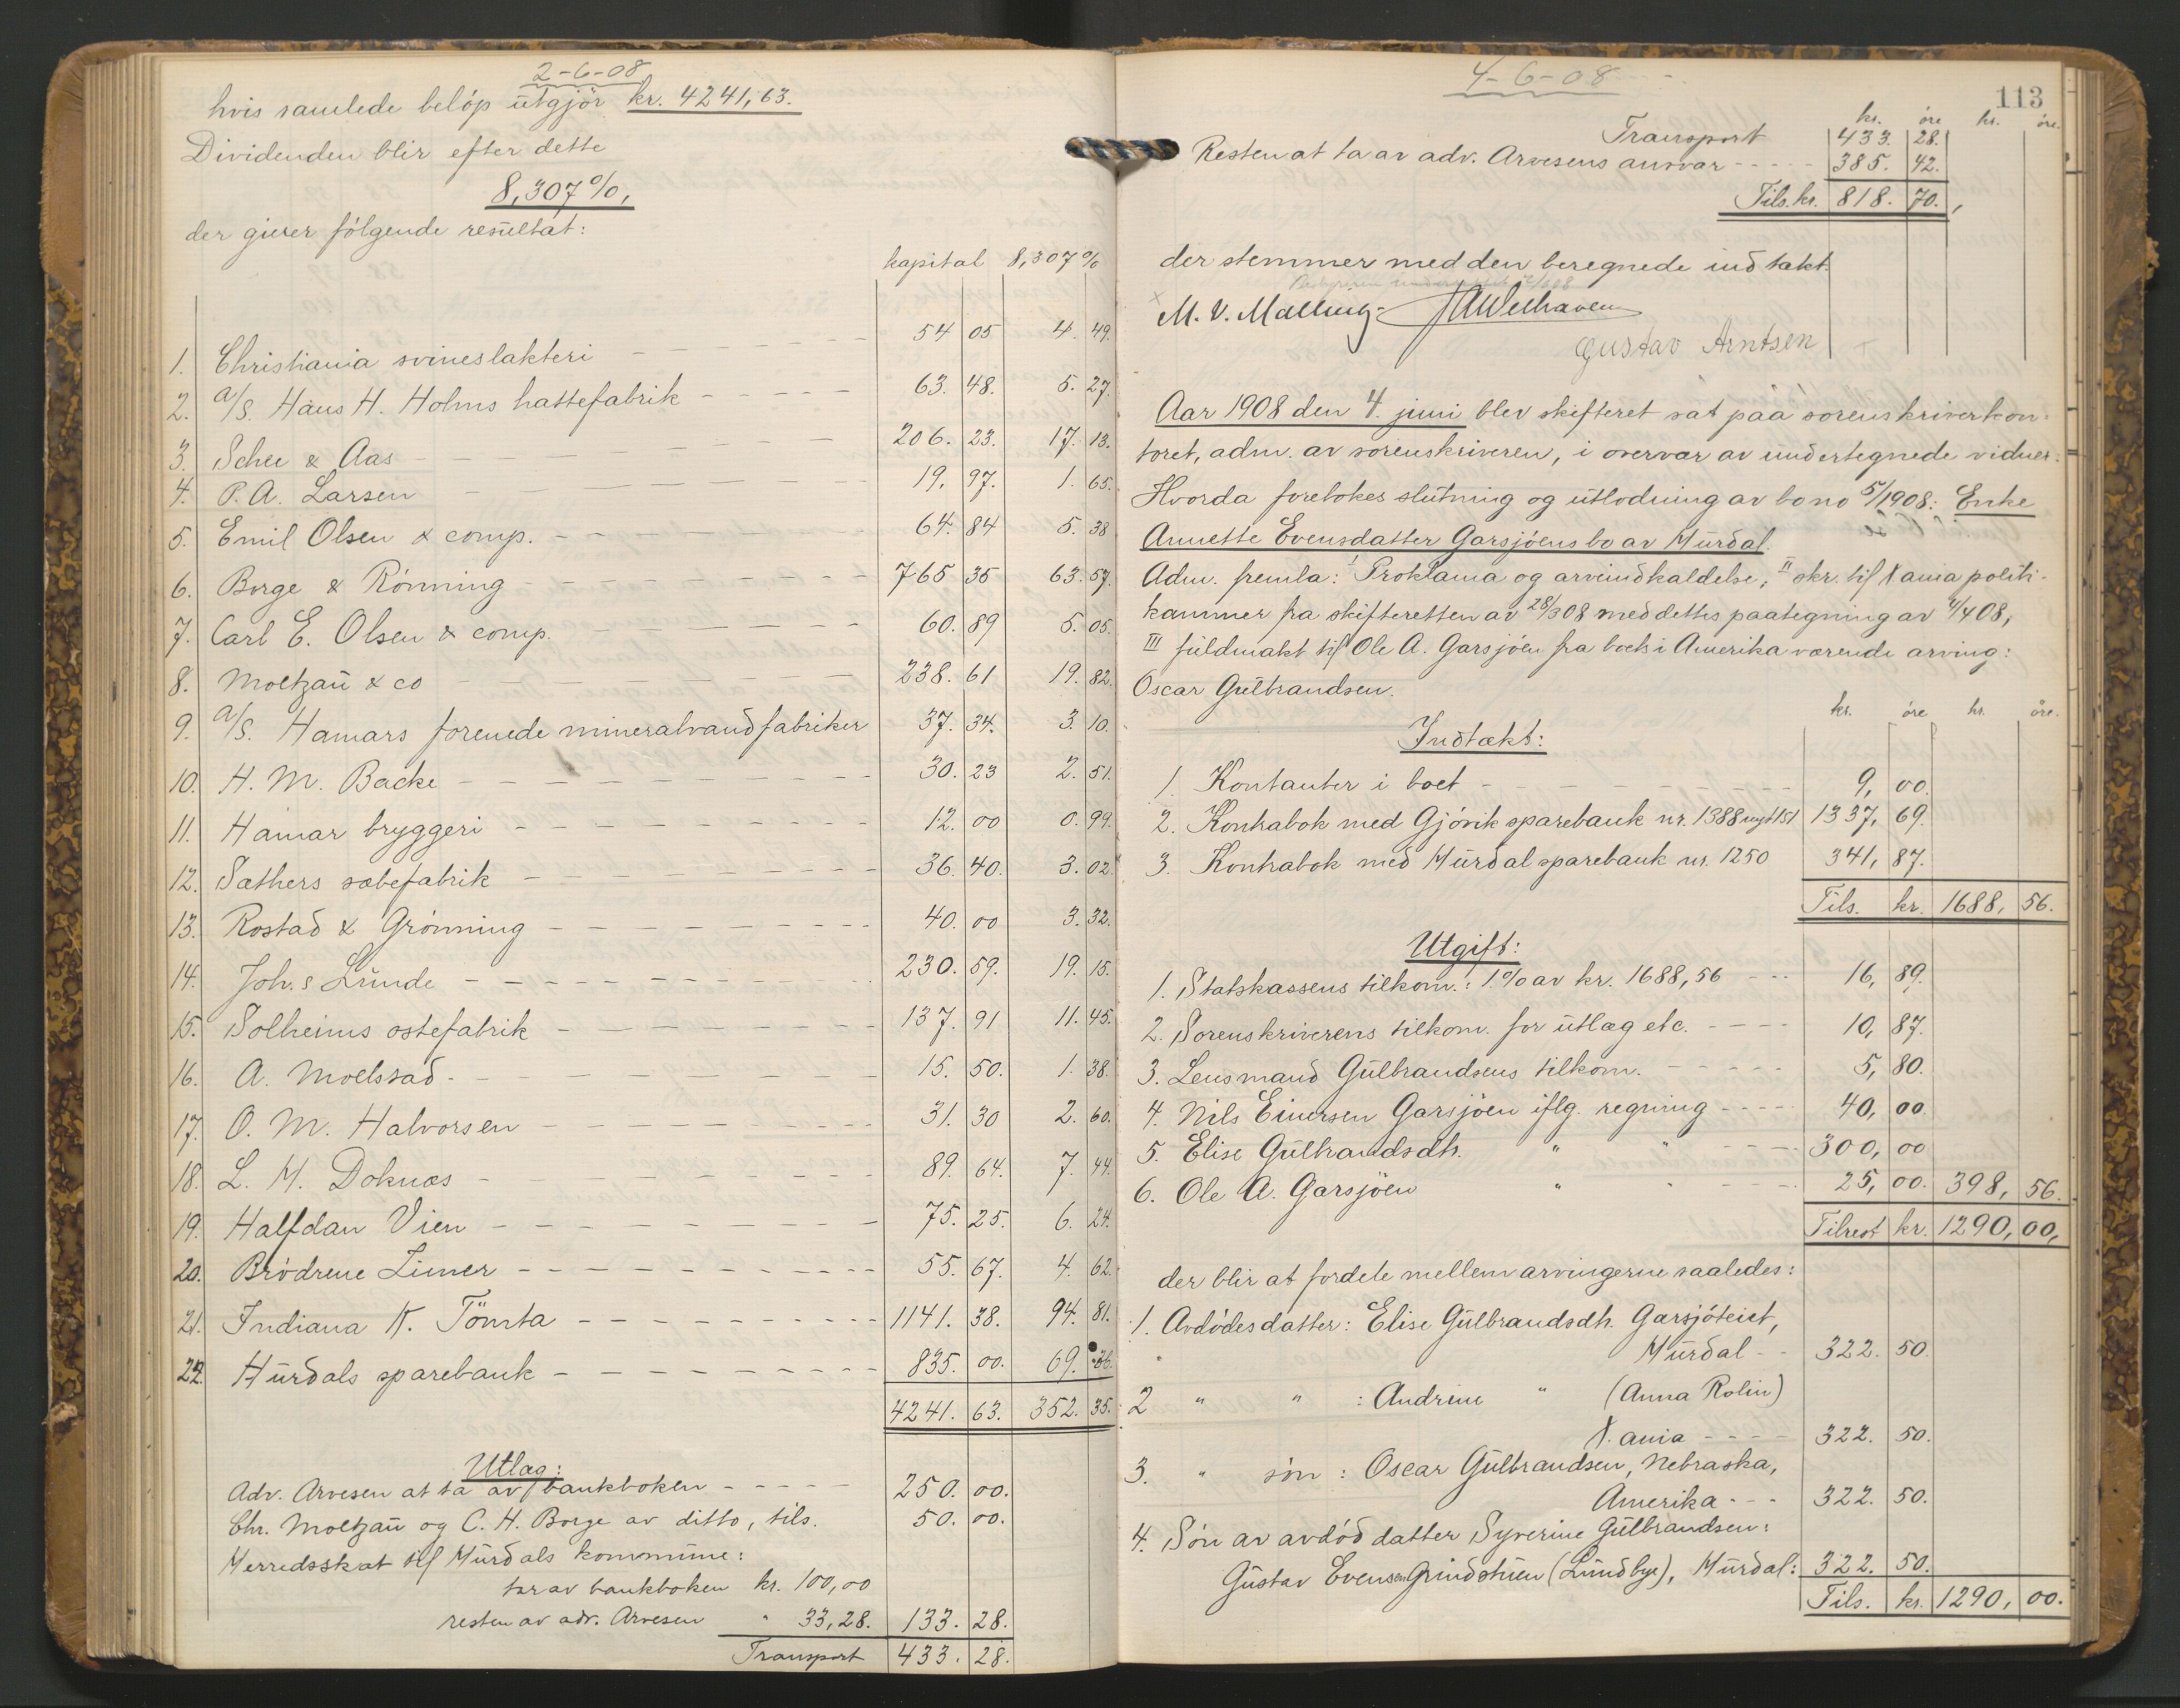 2-6-08
hvis samlede beløp utgjör kr. 4241,63.
Dividenden blir efter dette
8,307%,
der gierer følgende resultat:
kapital 8,307%
1. Christiania svineslakteri 54 05 4. 49.
2. A/S. Hans H. Holms hattefabrik 63. 48. 5. 27.
3. Schee & Aas 206. 23. 17. 13.
4. P. A. Larsen 19. 97. 1. 65.
5. Emil Olsen & comp. 64. 84 5. 38
6. Borge & Rönning 765 35 63. 57.
7. Carl E. Olsen & comp. 60. 89 5. 05.
8. Moltzau & co 238. 61 19. 82.
9. A/S. Hamars forenede mineralvandfabriker 37. 34. 3. 10.
10. H. M. Backe 30. 23 2. 51.
11. Hamar bryggeri 12. 00 0. 99.
12. Sæthers sæbefabrik 36. 40. 3. 02.
13. Rostad & Grönning 40. 00 3. 32.
14. Joh.s Lunde 230. 59. 19. 15.
15. Solheims ostefabrik 137. 91 11. 45.
16. A. Moelstad 15. 50. 1. 38.
17. O. M. Halvorsen 31. 30 2. 60.
18. L. H. Doknæs 89. 64. 7. 44.
19. Halfdan Vien 75. 25. 6. 24.
20. Brödrene Limer 55. 67. 4. 62.
21. Indiana K. Tömta 1141. 38. 94. 81.
22. Hurdals sparebank 835. 00. 69. 36.
4241. 63. 352. 35.
Utlæg:
Adv. Arvesen at ta av bankboken 250. 00.
Chr. Moltzau og C. H. Borge av ditto, tils. 50. 00.
Herredsskat til Hurdals kommune:
tar av bankboken kr. 100,00
resten av adv. Arvesen " 33,28. 133. 28.
Transport 433. 28.
4-6-08
113
kr. öre kr. öre.
Transport 433. 28.
Resten at ta av adv. Arvesens ansvar 385. 42.
Tils. kr. 818. 70.,
der stemmer med den beregnede indtækt.
M. V. Malling. Welhaven
Gustav Arntsen
Aar 1908 den 4. juni blev skifteret sat paa sorenskriverkon-
toret, adm. av sorenskriveren, i overvær av undertegnede vidner.
Hvorda foretokes slutning og utlodning av bo no 5/1908: Enke
Annette Evensdatter Garsjöens bo av Hurdal.
Adm. fremla: I Proklama og arveindkaldelse, II skr. til Xania politi-
kammer fra skifteretten av 28/3 08 med dettes paategning av 4/4 08,
III fuldmakt til Ole A. Garsjöen fra boets i Amerika værende arving:
Oscar Gulbrandsen.
kr. öre kr. öre.
Indtækt:
1. Kontanter i boet 9, 00.
2. Kontrabok med Gjövik sparebank nr. 1388 nyt 151 1337, 69.
3. Kontrabok med Hurdal sparebank nr. 1250 341, 87.
Tils. kr. 1688, 56.
Utgift:
1. Statskassens tilkom.: 1% av kr. 1688,56 16, 89.
2. Sorenskriverens tilkom. for utlæg etc. 10, 87.
3. Lensmand Gulbrandsens tilkom. 5, 80.
4. Nils Einersen Garsjöen iflg. regning 40, 00.
5. Elise Gulbrandsdtr. " " 300, 00
6. Ole A. Garsjöen " " 25, 00. 398, 56.
Tilrest kr. 1290, 00,
der blir at fordele mellem arvingerne saaledes:
1. Avdödes datter: Elise Gulbrandsdtr. Garsjöteiet,
Hurdal 322. 50.
2 " " : Andrine " (Anna Rolin)
Xania 322. 50.
3. " sön: Oscar Gulbrandsen, Nebraska,
Amerika 322. 50.
4. Sön av avdöd datter Syverine Gulbrandsen:
Gustav Evensen Grindstuen (Lundbye), Hurdal: 322. 50.
Tils. kr. 1290, 00.